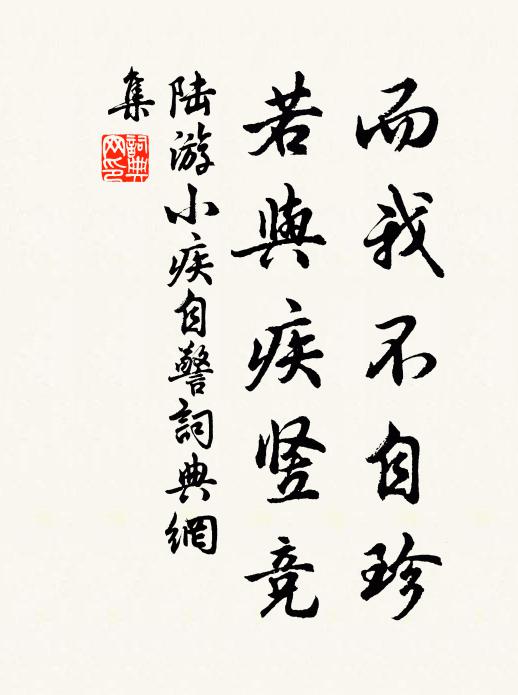 而我不自珍
若與疾竖竞
陸游小疾自警詞典網
集
詞典网印